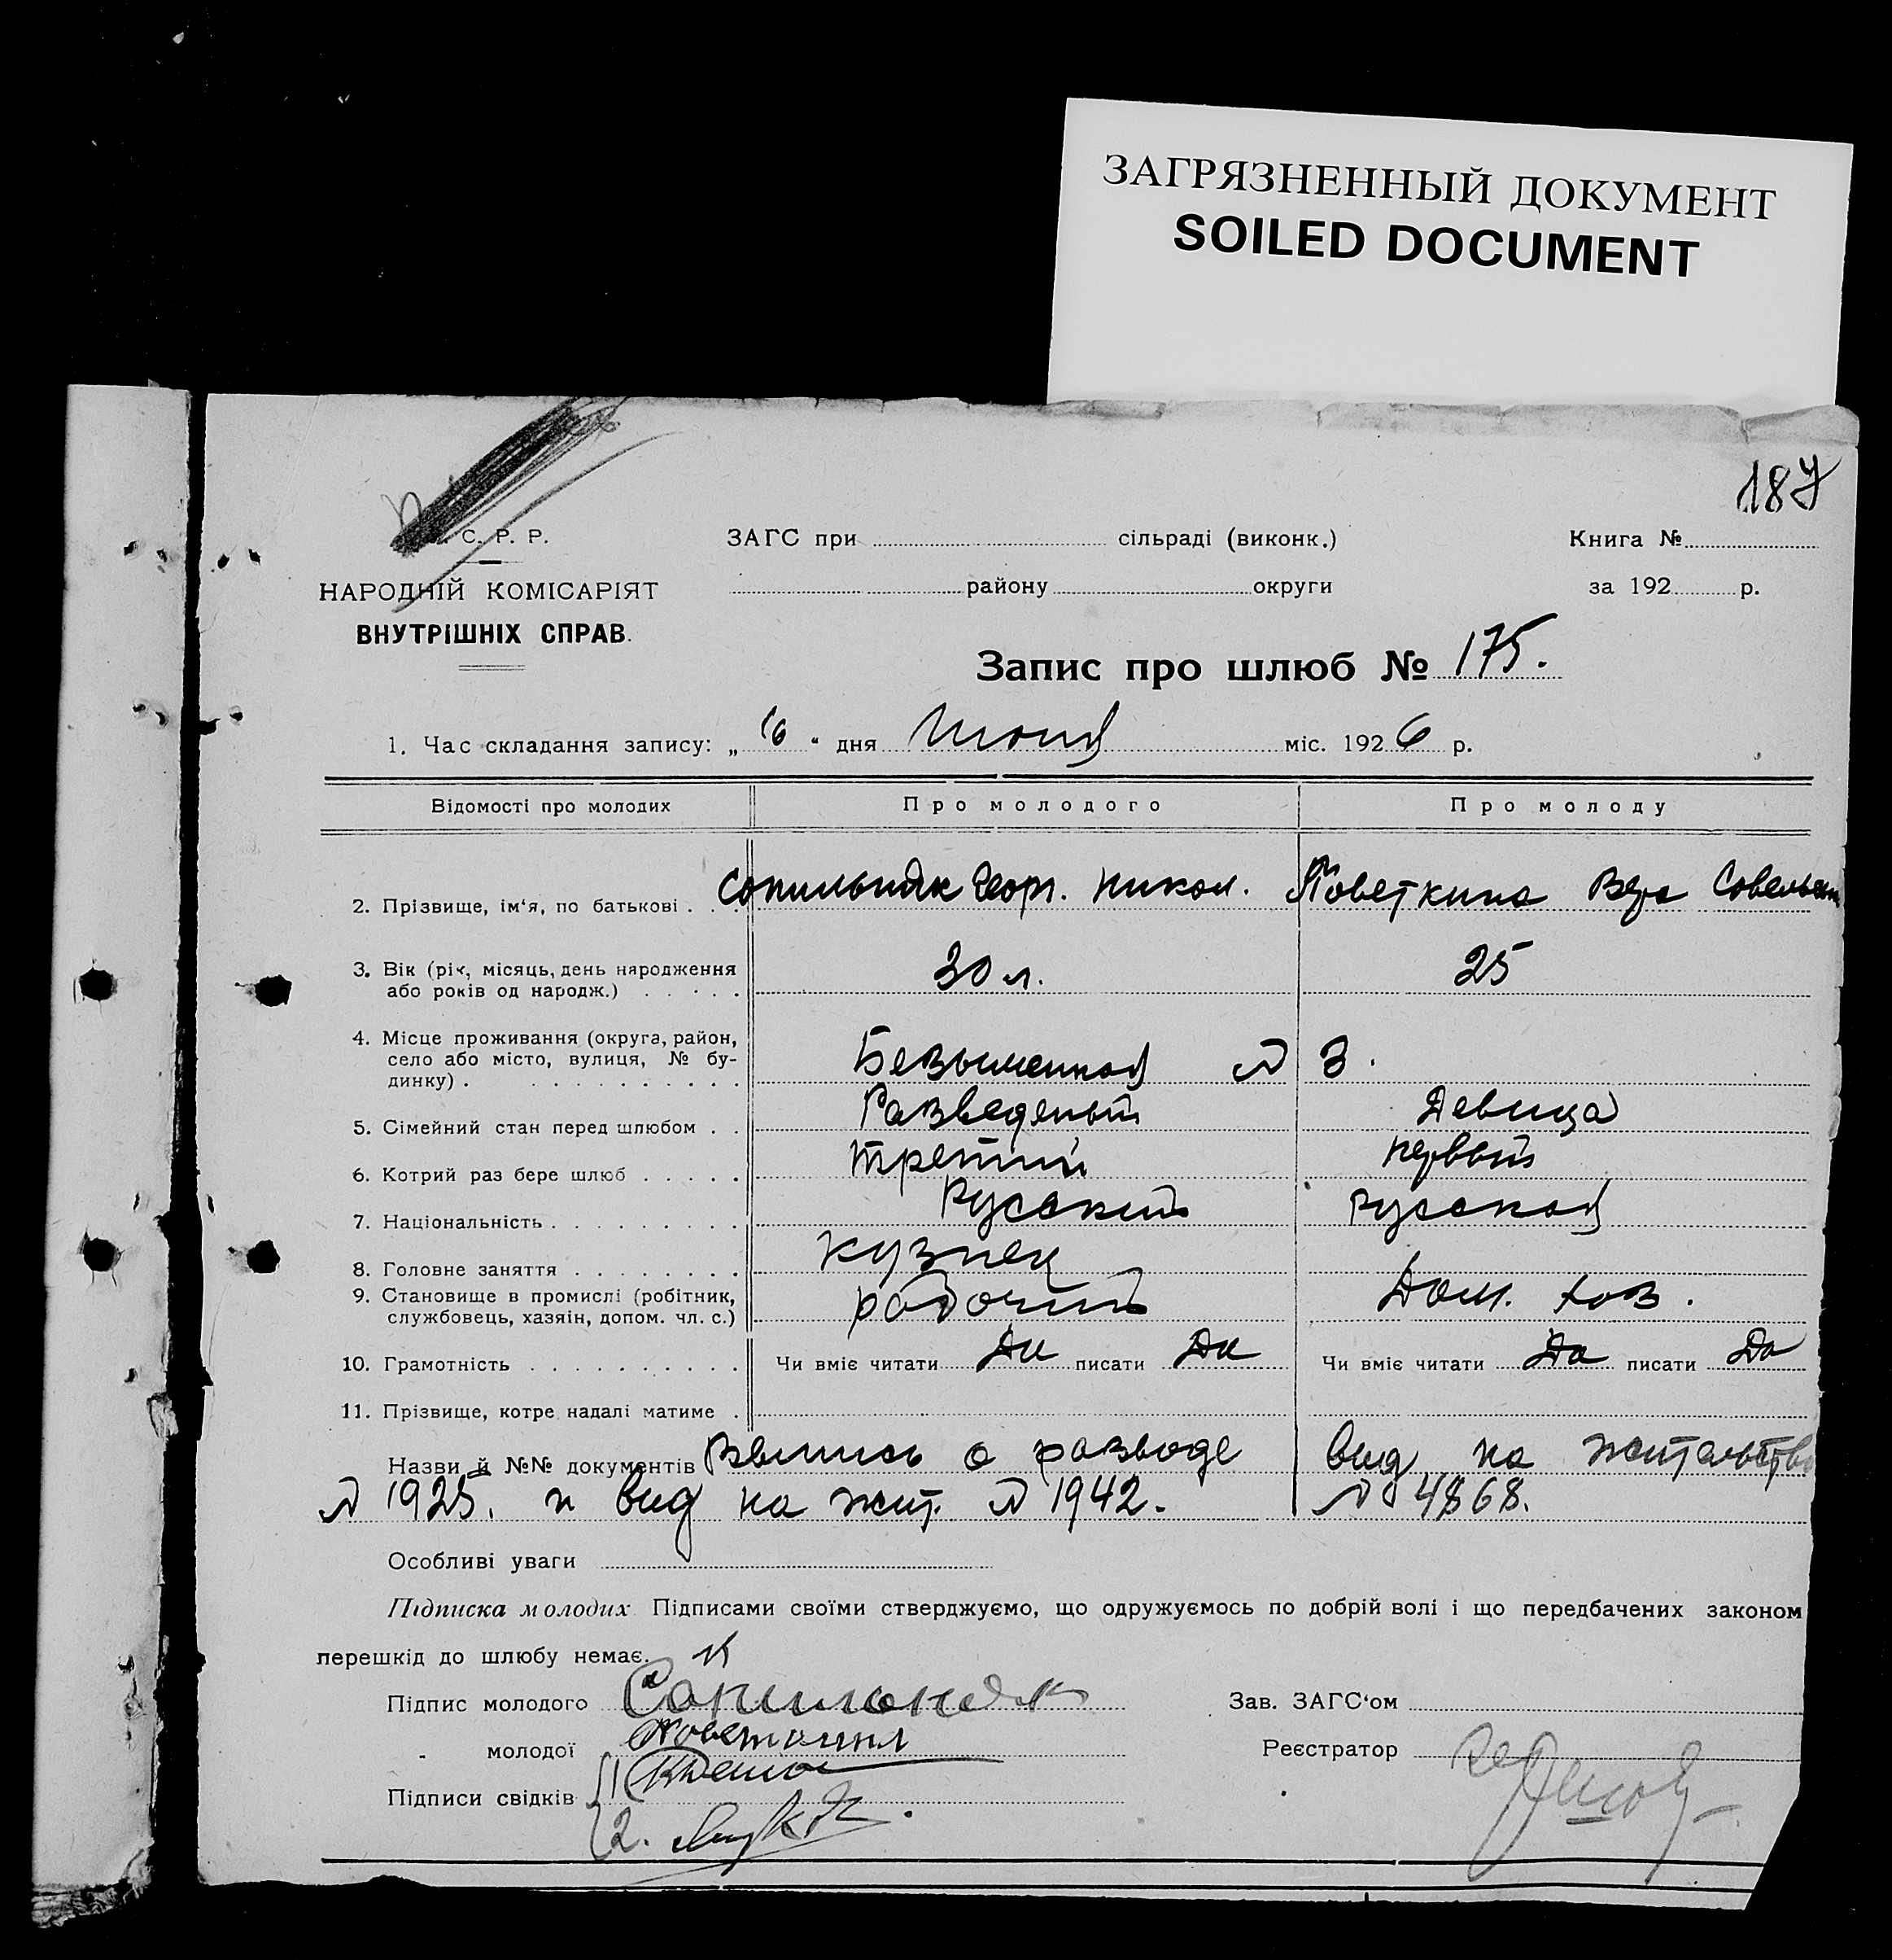 ЗАГРЯЗНЕННЫЙ ДОКУМЕНТ
SOILED DOCUMENT
187
С. Р. Р.
ЗАГС при сільраді (виконк.)
Книга №
НАРОДНІЙ КОМІСАРІЯТ
району округи
за 192 р.
ВНУТРІШНІХ СПРАВ.
Запис про шлюб № 175.
1. Час складання запису: „16“ дня Июня міс. 1926 р.
Відомості про молодих Про молодого Про молоду
2. Прізвище, ім‘я, по батькові . . . Сопильняк Георг. Никол. Поветкина Вера
3. Вік (рік, місяць, день народження
або років од народж.) . . . . . 30 л. 25
4. Місце проживання (округа, район,
село або місто, вулиця, № бу-
динку) . . . . . . . . . . . Безыменная № 3.
5. Сімейний стан перед шлюбом . . Разведеный Девица
6. Котрий раз бере шлюб . . . . . третий первый
7. Національність . . . . . . . . . Русский русская
8. Головне заняття . . . . . . . . кузнец
9. Становище в промислі (робітник,
службовець, хазяін, допом. чл. с.) рабочий Дом. хоз.
10. Грамотність . . . . . . . . . . Чи вміє читати Да писати Да Чи вміє читати Да писати Да
11. Прізвище, котре надалі матиме .
Назви й №№ документів о разводе вид на жительство
№ 1925. и вид на жит. № 1942. № 4868.
Особливі уваги
Підписка молодих Підписами своїми стверджуємо, що одружуємось по добрій волі і що передбачених законом
перешкід до шлюбу немає.
Підпис молодого Сопильняк Зав. ЗАГС‘ом
молодої Реєстратор
Підписи свідків 1
2.